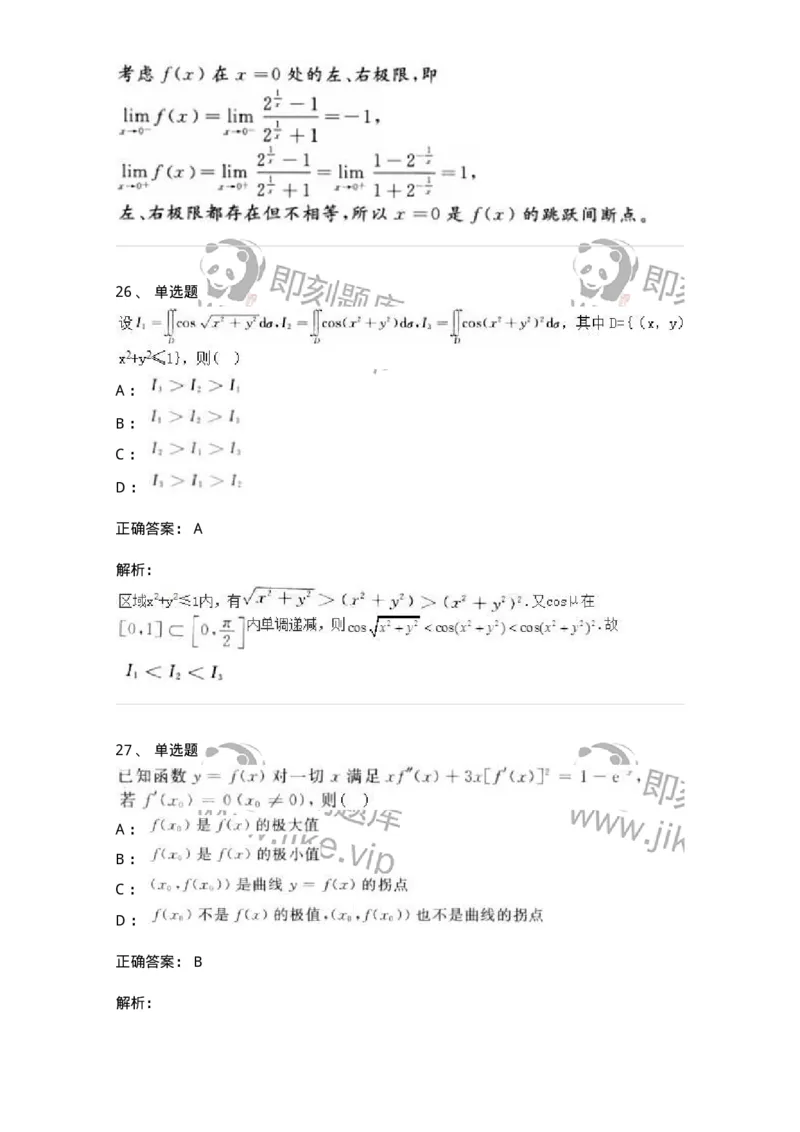 考虑 f(x) 在 x=0 处的左、右极限,即
lim_{x→0⁻} f(x) = lim_{x→0⁻} (2^{1/x} − 1)/(2^{1/x} + 1) = −1,
lim_{x→0⁺} f(x) = lim_{x→0⁺} (2^{1/x} − 1)/(2^{1/x} + 1) = lim_{x→0⁺} (1 − 2^{−1/x})/(1 + 2^{−1/x}) = 1,
左、右极限都存在但不相等,所以 x=0 是 f(x) 的跳跃间断点。
即刻题库
即刻
26 、 单选题
设I₁=∬_D cos √(x²+y²)dσ,I₂=∬_D cos(x²+y²)dσ,I₃=∬_D cos(x²+y²)²dσ，其中D={(x，y)
x²+y²≤1}，则( )
A： I₃ > I₂ > I₁
B： I₁ > I₂ > I₃
C： I₂ > I₁ > I₃
D： I₃ > I₁ > I₂
正确答案： A
解析：
区域x²+y²≤1内，有√(x²+y²) > (x²+y²) > (x²+y²)².又cosμ在
[0,1]⊂[0,π/2]内单调递减，则cos√(x²+y²) < cos(x²+y²) < cos(x²+y²)².故
I₁ < I₂ < I₃
27 、 单选题
已知函数 y = f(x) 对一切 x 满足 xf″(x) + 3x[f′(x)]² = 1 − e⁻ˣ,
若 f′(x₀) = 0 (x₀ ≠ 0), 则( )
A： f(x₀) 是 f(x) 的极大值
B： f(x₀) 是 f(x) 的极小值
C： (x₀,f(x₀)) 是曲线 y = f(x) 的拐点
D： f(x₀) 不是 f(x) 的极值,(x₀,f(x₀)) 也不是曲线的拐点
正确答案： B
解析：